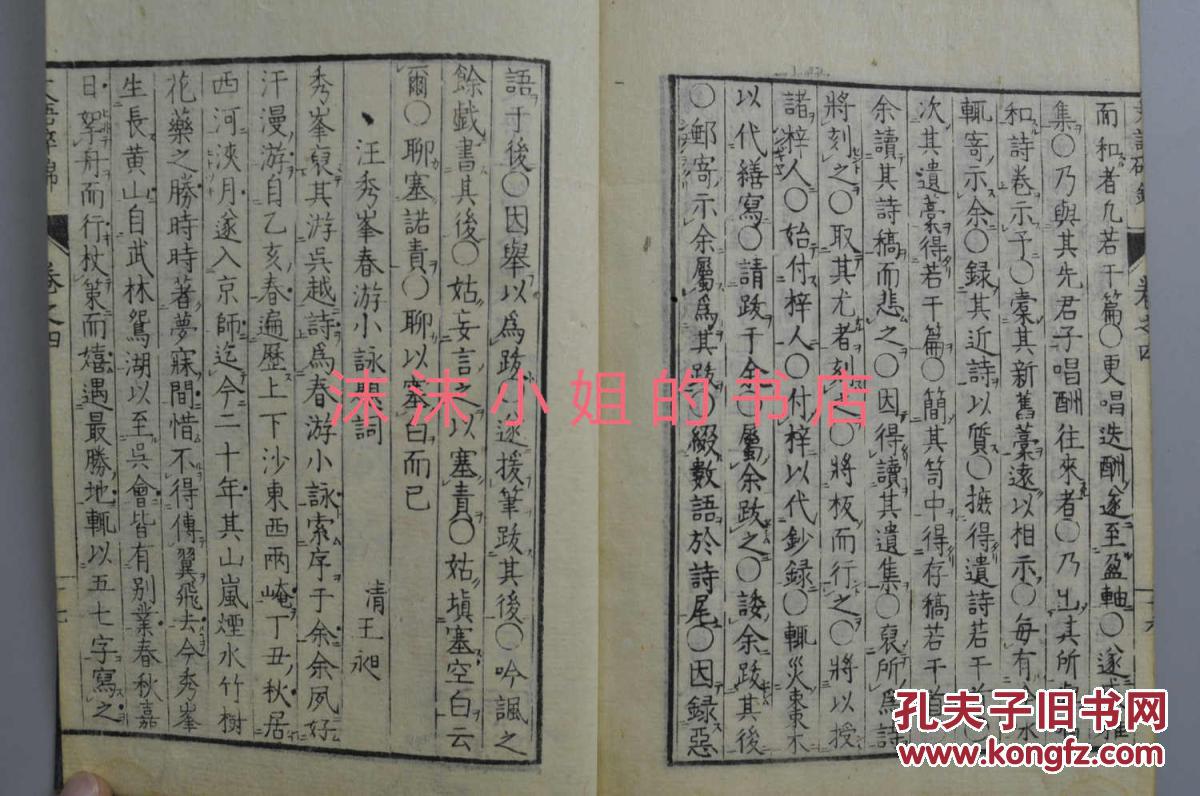 而和者九若干篇〇更唱迭酬遂至盈軸〇遂
集〇乃與其先君子唱酬往來者〇乃出其所
和詩卷示予〇橐其新舊藁遠以相示〇每有
輒寄示余〇録其近詩以質〇摭得遺詩若干
次其遺藁得若干篇〇簡其笥中得存稿若干首
余讀其詩稿而悲之〇因得讀其遺集〇裒所爲詩
將刻之〇取其尤者刻〇將板而行之〇將以授
諸梓人〇始付梓人〇付梓以代鈔録〇輒災棗東不
以代繕寫〇請跋于余〇屬余跋之〇諉余跋其後
〇郵寄示余屬爲其跋〇綴數語於詩尾〇因録惡
卷之四
語于後〇因舉以爲跋〇遂援筆跋其後〇吟諷之
餘戲書其後〇姑妄言之以塞責〇姑塡塞空白云
爾〇聊塞諾責〇聊以塞白而已
汪秀峯春游小詠題詞 清王昶
秀峯裒其游吳越詩爲春游小詠索序于余余夙好
汗漫游自乙亥春遍歷上下沙東西兩崦丁丑秋居
西河浹月遂入京師迄今二十年其山嵐煙水竹樹
花藥之勝時時著夢寐間惜不得傳翼飛去今秀峯
生長黃山自武林鴛湖以至吳會皆有別業春秋嘉
日挐舟而行杖策而嬉遇最勝地輒以五七字寫之
卷之四
沫沫小姐的书店
孔夫子旧书网
www.kongfz.com